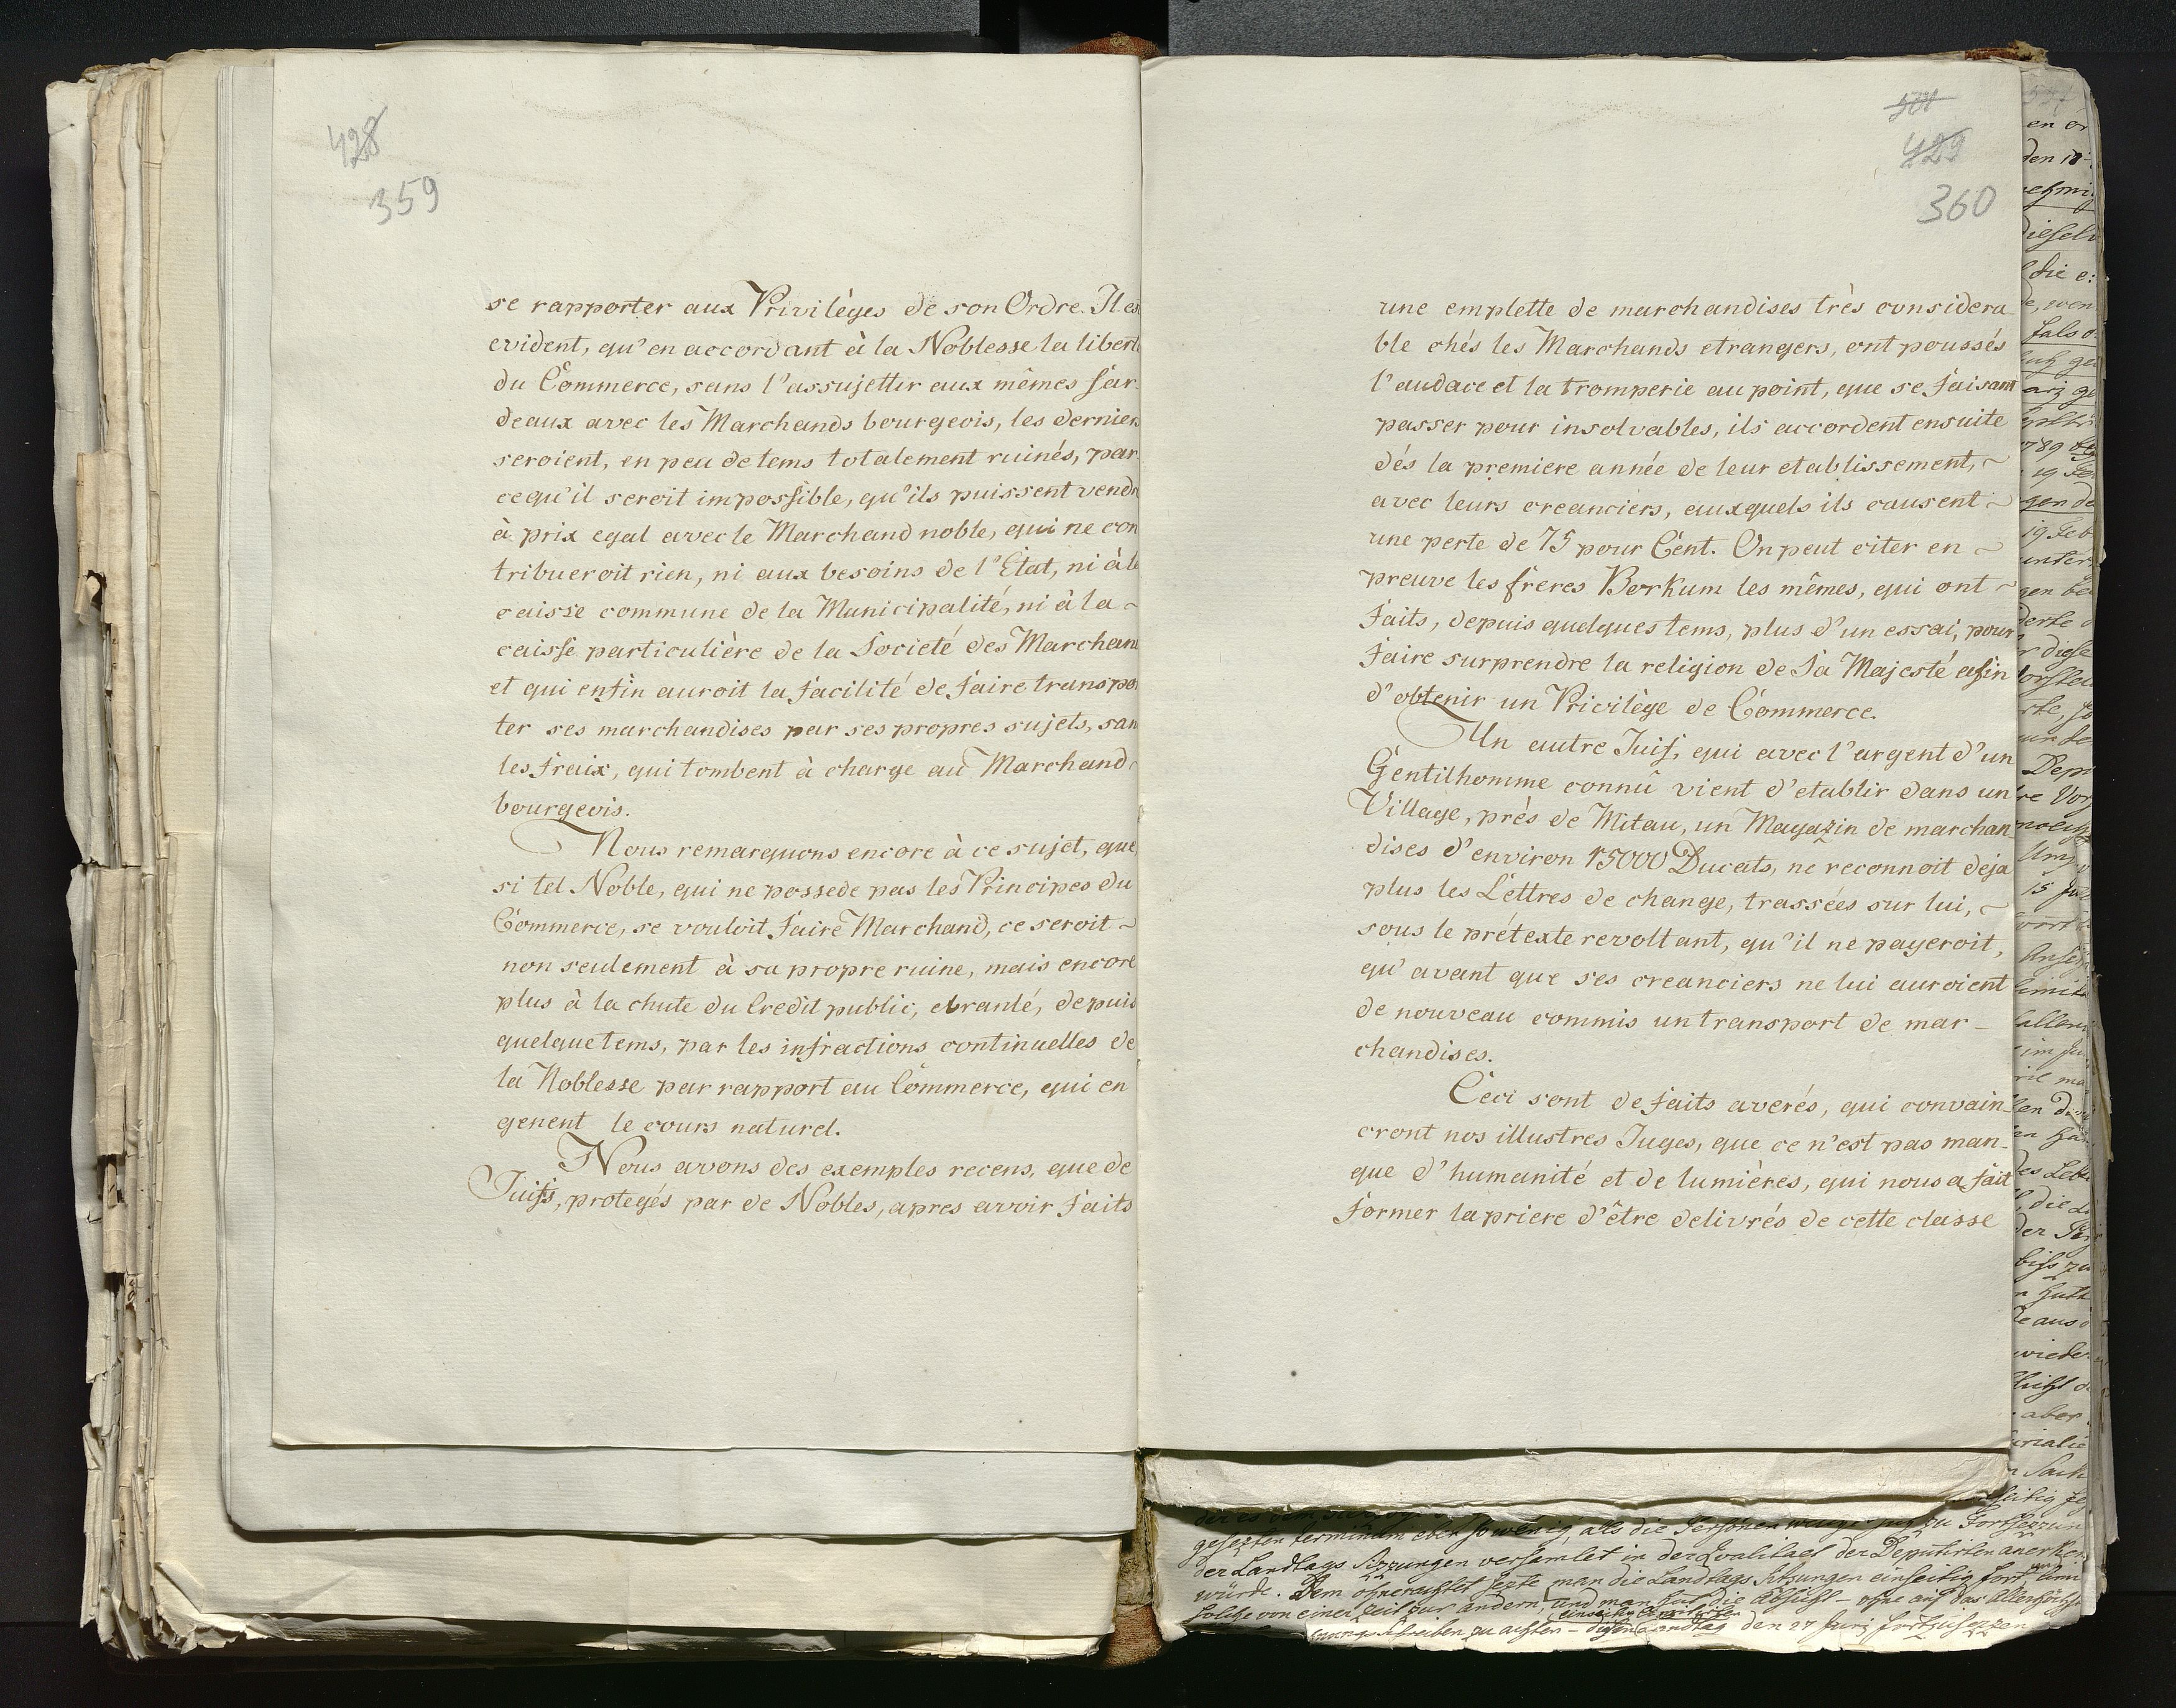 428
359
se rapporter aux Privilèges de son Ordre. Il es
evident, qu'en accordant à la Noblesse la libert
du Commerce, sans l'assujettir aux mêmes far-
deaux avec les Marchands bourgeois, les derniers
seroient, en peu de tems totalement ruinés, par-
cequ'il seroit impossible, qu'ils puissent vendr
à prix egal avec le Marchand noble, qui ne con
tribueroit rien, ni aux besoins de l'Etat, ni à la
caisse commune de la Municipalité, ni à la
caisse particulière de la Societé des Marchan
et qui enfin auroit la facilité de faire transpor
ter ses marchandises par ses propres sujets, san
les fraix, qui tombent à charge au Marchand
bourgeois.
Nous remarquons encore à ce sujet, que,
si tel Noble, qui ne possede pas les Principes du
Commerce, se vouloit faire Marchand, ce seroit
non seulement à sa propre ruine, mais encore
plus à la chute du Credit public, ebranlé, depuis
quelque tems, par les infractions continuelles de
la Noblesse par rapport au Commerce, qui en
genent le cours naturel.
Nous avons des exemples recens, que de
Juifs, protegés par de Nobles, apres avoir faits
501
429
360
une emplette de marchandises très considera
ble chés les Marchands etrangers, ont poussés
l'audace et la tromperie au point, que se faisant
passer pour insolvables, ils accordent ensuite
dés la premiere année de leur etablissement,
avec leurs creanciers, auxquels ils causent
une perte de 75 pour Cent. On peut citer en
preuve les freres Borkum les mêmes, qui ont
faits, depuis quelques tems, plus d'un essai, pour
faire surprendre la religion de Sa Majesté afin
d'obtenir un Privilège de Commerce.
Un autre Juif, qui avec l'argent d'un
Gentilhomme connû vient d'etablir dans un
Village, prés de Mitau, un Magazin de marchan
dises d'environ 15000 Ducats, ne reconnoit deja
plus les Lettres de change, trassées sur lui,
sous le prétexte revoltant, qu'il ne payeroit,
qu'avant que ses creanciers ne lui auroient
de nouveau commis un transport de mar-
chandises.
Ceci sont de faits averés, qui convain-
cront nos illustres Juges, que ce n'est pas man-
que d'humanité et de lumières, qui nous a fait
former la priere d'être delivrés de cette classe
der Landtags Sizzungen versamlet in der Qualitaet der Deputirten anerken
würde. Dem ohnerachtet sezte man die Landtags Sitzungen einseitig fort
solche von einer Zeit zur andern, und man hat die Absicht - ohne auf das Allerhöchste
den 27 Junij fortzusezzen